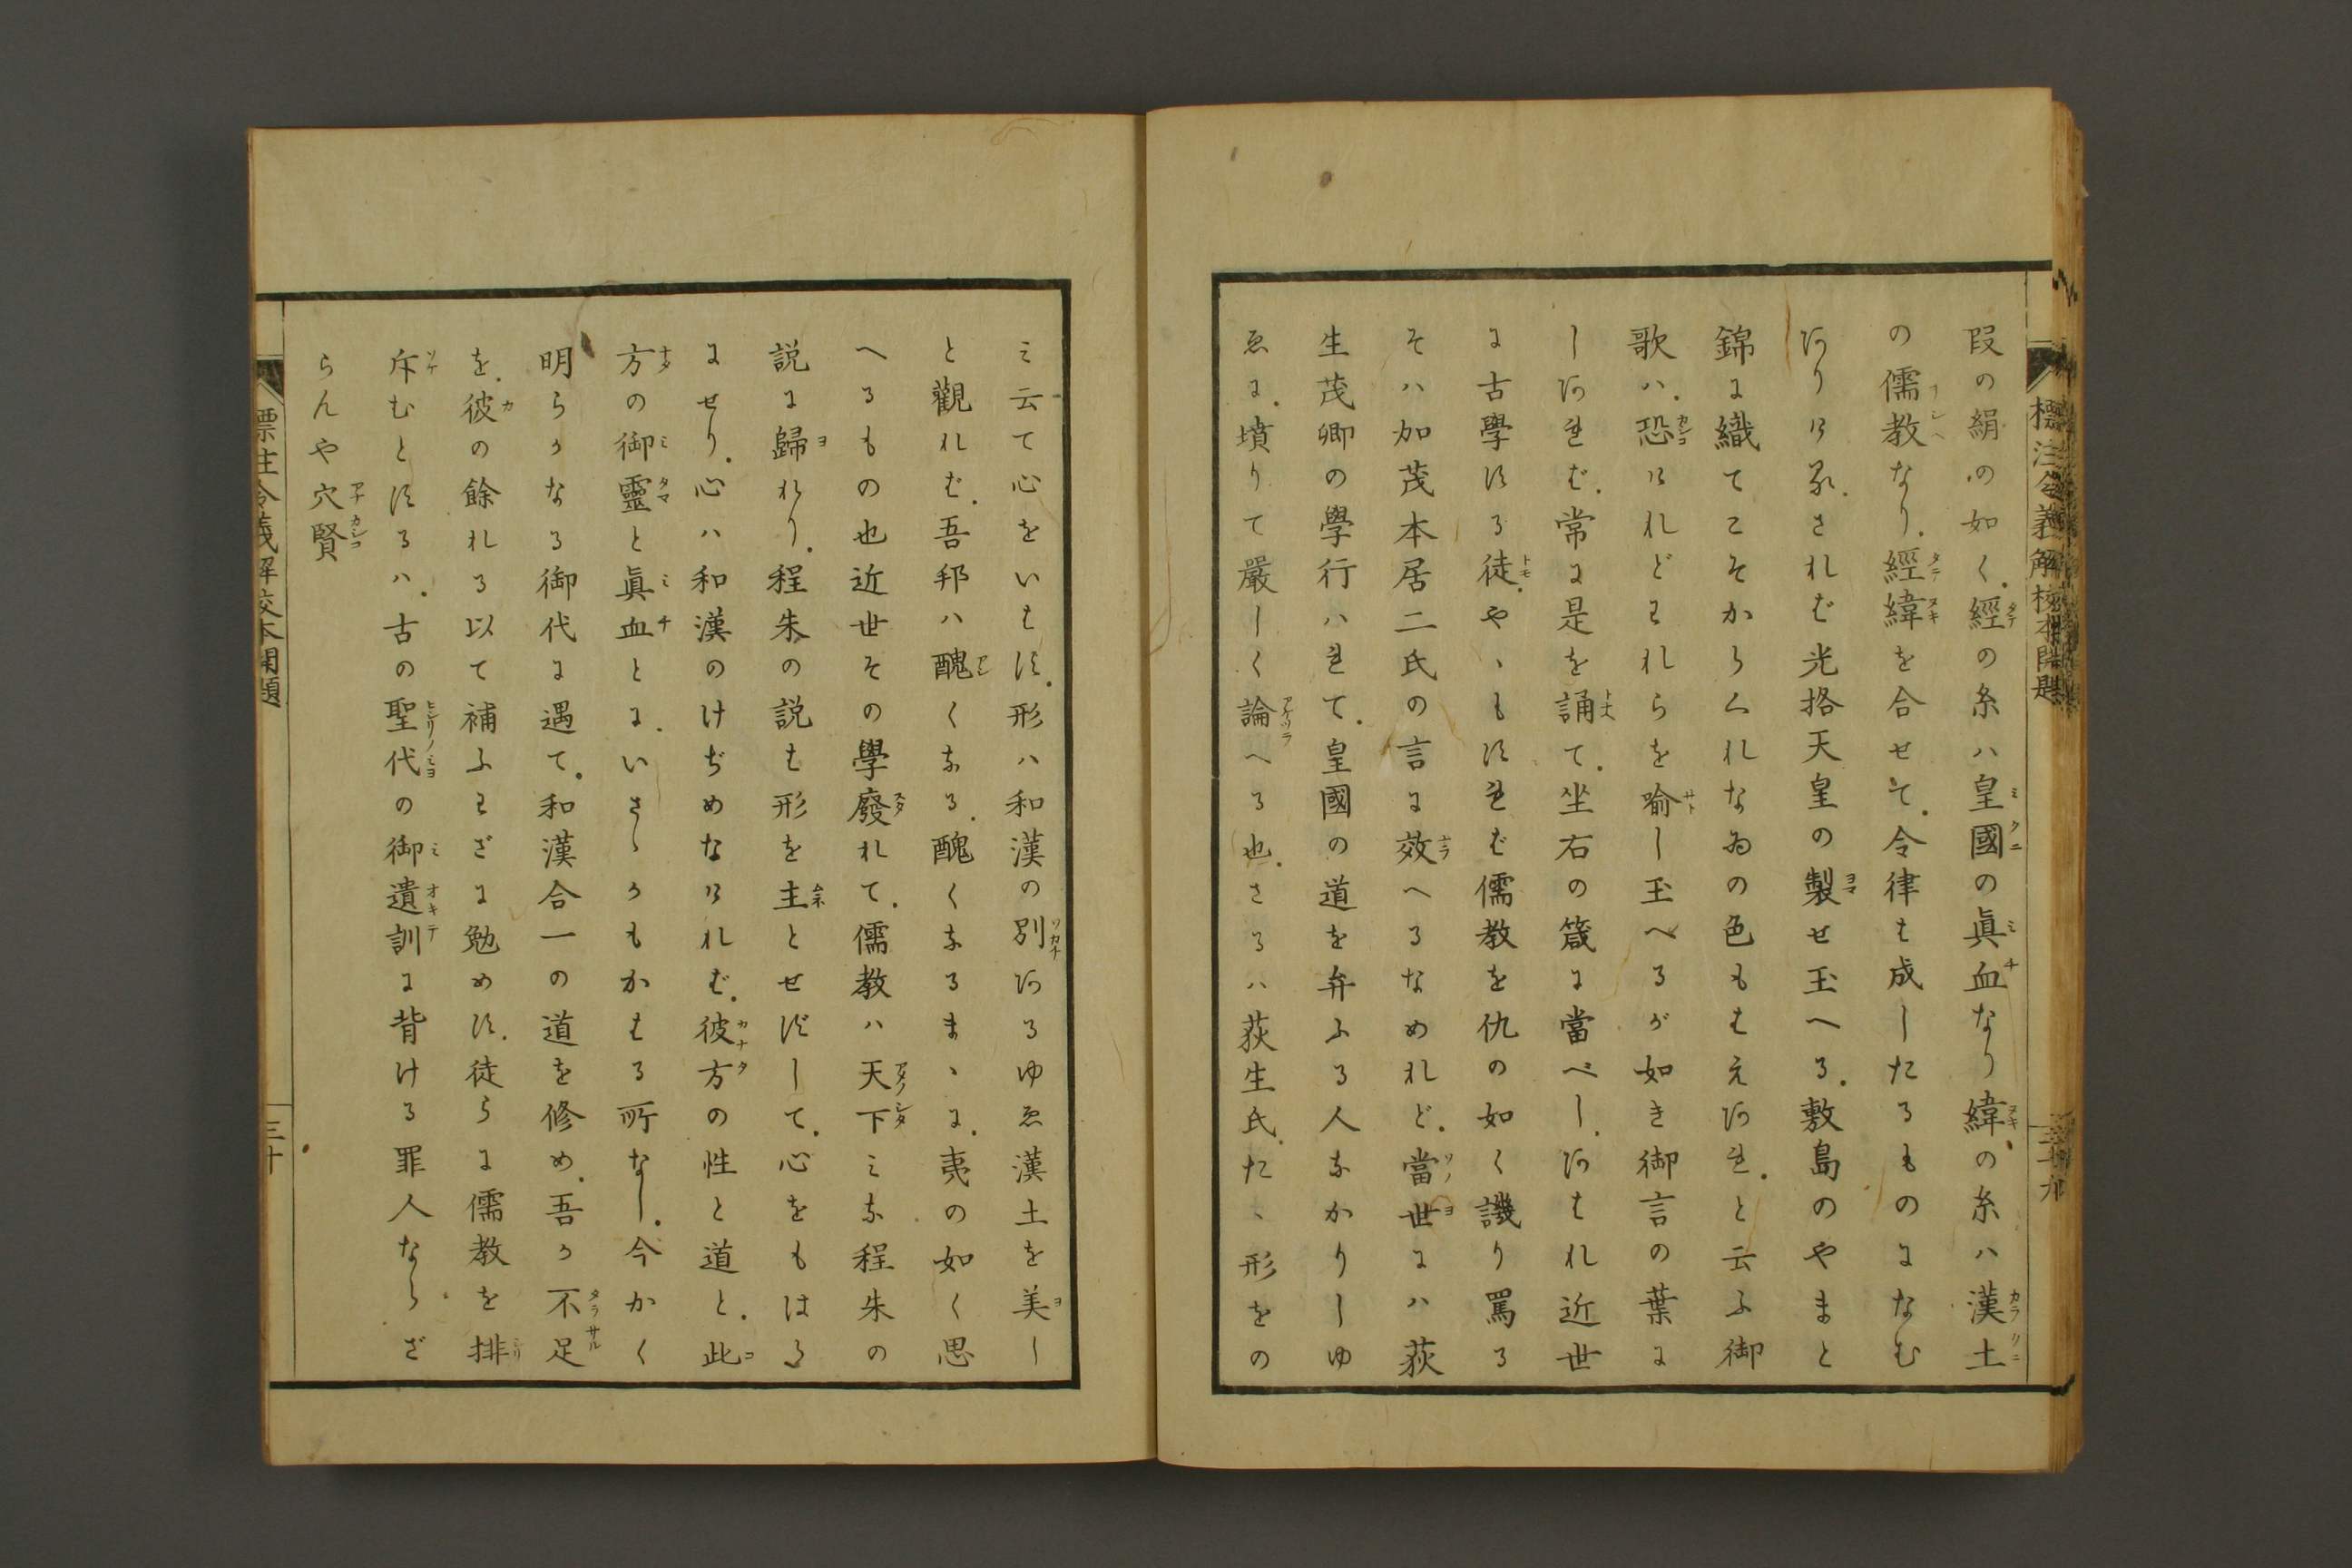 標注令義解校本開題
二十九
段の絹の如く。經の糸ハ皇國の眞血なり緯の糸ハ漢土
の儒教なり。經緯を合せて。令律も成したるものになむ
ありける。されば光格天皇の製せ玉へる。敷島のやまと
錦に織てこそからくれなゐの色もはえあれ。と云ふ御
歌ハ。恐けれどこれらを喻し玉へるが如き御言の葉に
しあれば。常に是を誦て。坐右の箴に當べし。あはれ近世
に古學する徒。やゝもすれば儒教を仇の如く譏り罵る
そハ加茂本居二氏の言に效へるなめれど。當世にハ荻
生茂卿の學行ハれて。皇國の道を弁ふる人なかりしゆ
ゑに。墳りて嚴しく論へる也。さるハ荻生氏。たゞ形をの
ミ云て心をいはず。形ハ和漢の別あるゆゑ漢土を美し
と觀れば。吾邦ハ醜くなる。醜くなるまゝに。夷の如く思
へるもの也近世その學廢れて。儒教ハ天下ミな程朱の
説に歸れり。程朱の説は形を主とせずして。心をもはら
にせり。心ハ和漢のけぢめなければ。彼方の性と道と。此
方の御靈と眞血とに。いさゝかもかはる所なし。今かく
明らかなる御代に遇て。和漢合一の道を修め。吾か不足
を。彼の餘れる以て補ふわざに勉めず。徒らに儒教を排
斥むとするハ。古の聖代の御遺訓に背ける罪人ならざ
らんや穴賢
標注令義解校本開題
三十